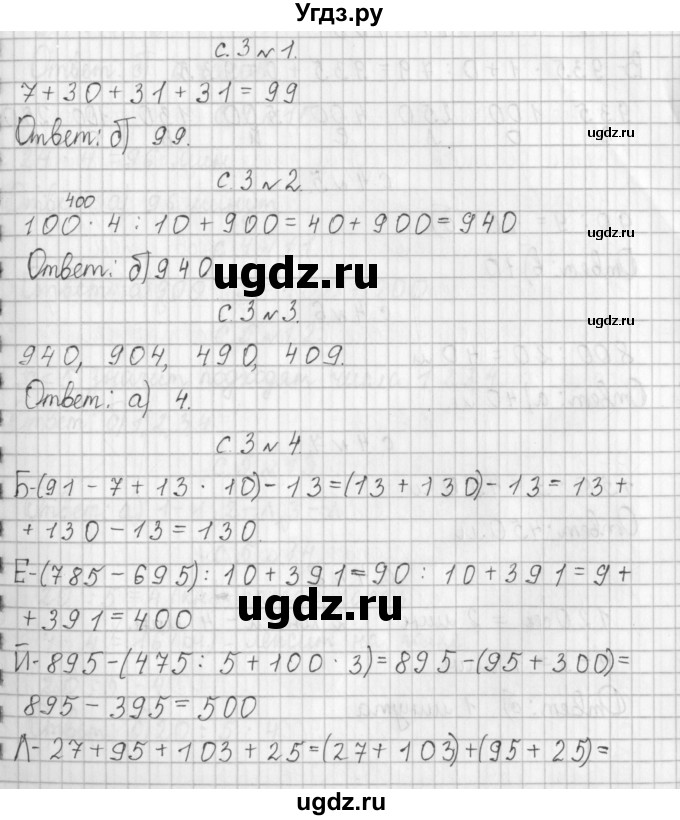 Угдз.ру
с. 3 № 1.
7 + 30 + 31 + 31 = 99
Ответ: б) 99.
ugdz.ru
с. 3 № 2.
400
100 · 4 : 10 + 900 = 40 + 900 = 940
ugdz.ru
Ответ: б) 940
ugdz.ru
с. 3 № 3.
ugdz.ru
940, 904, 490, 409.
Ответ: а) 4.
с. 3 № 4.
ugdz.ru
Б-(91 - 7 + 13 · 10) - 13 = (13 + 130) - 13 = 13 +
+ 130 - 13 = 130.
Е-(785 - 695) : 10 + 391 = 90 : 10 + 391 = 9 +
ugdz.ru
+ 391 = 400
ugdz.ru
Й- 895 - (475 : 5 + 100 · 3) = 895 - (95 + 300) =
895 - 395 = 500
ugdz.ru
Л- 27 + 95 + 103 + 25 = (27 + 103) + (95 + 25) =
ugdz.ru